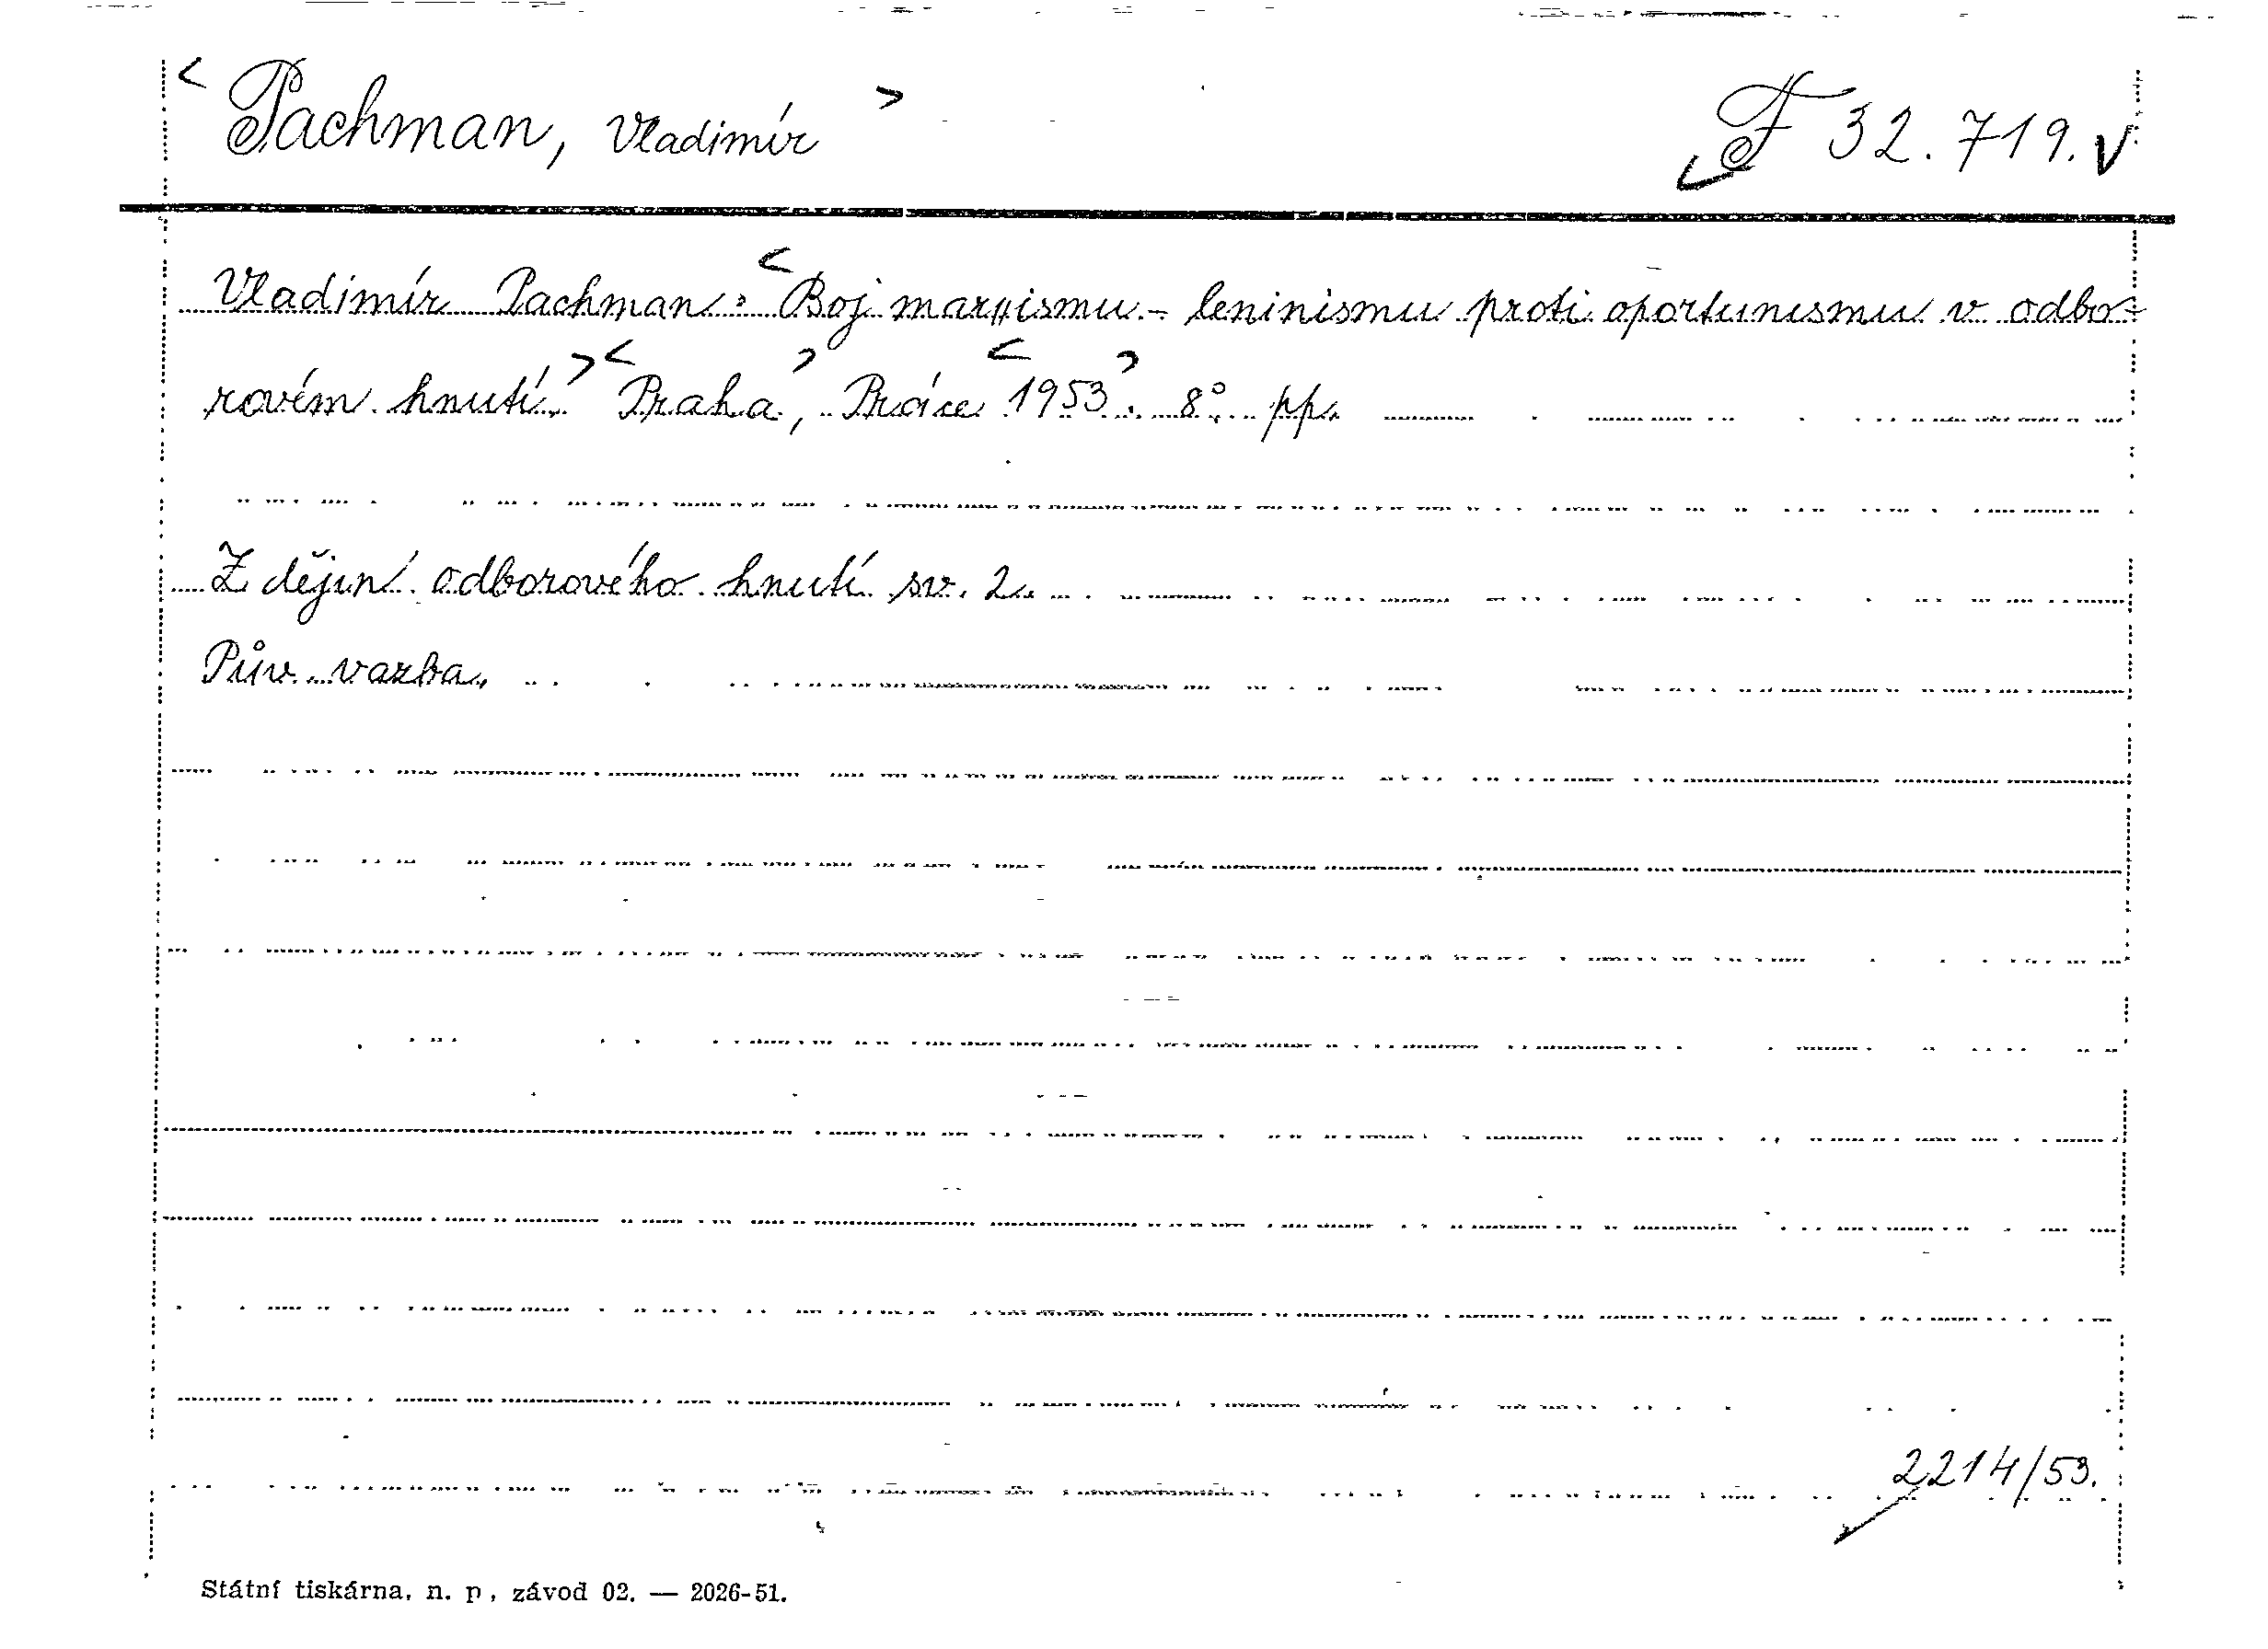 < Pachman, Vladimír > F 32.719.
Vladimír Pachman: < Boj marxismu - leninismu proti oportunismu v odbo-
rovém hnutí. > < Praha >, Práce < 1953 >. 8°. pp.
Z dějin odborového hnutí sv. 2.
Pův. vazba.
2214/53.
Státní tiskárna, n. p., závod 02. — 2026-51.